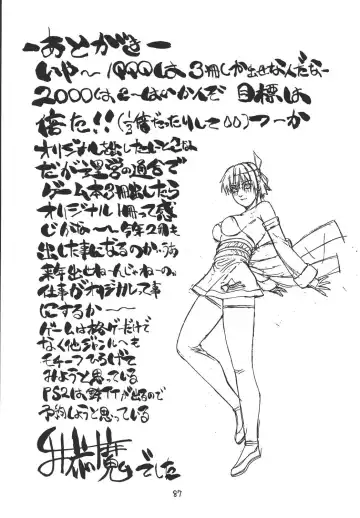 ーあとがきー
いやー1999は3冊しか出せなんだなー
2000はこーはいかんぞ 目標は
倍だ!!(1/3倍だったりして) つーか
オリジナルも出したいところな
だが運営の都合で
ゲーム本3冊出したら
オリジナル1冊って感
じじゃな〜今年2冊も
出した事になるのか
来年出せねーんじゃねーの
仕事がオリジナルって事
にするか〜
ゲームは格ゲーだけで
なく他ジャンルへも
モチーフひろげて
みようと思っている
PS2は鉄TTが出るので
予約しようと思っている
でした
87